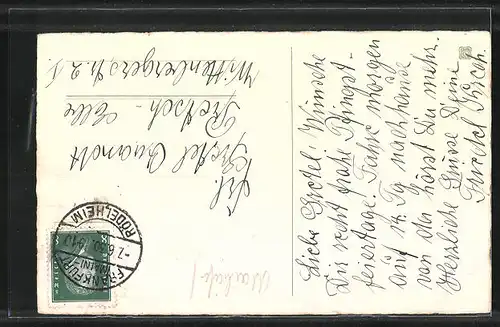 Liebe Gretel! Wünsche
Dir recht frohe Pfingst-
feiertage. Fahre morgen
auf 14 Tg nach hause
von da hörst Du mehr.
Herzliche Grüsse Deine
Frl.
Gretel
Pretzsch - Elbe
Wittenbergerstr. 2
FRANKFURT
(MAIN)
RÖDELHEIM
8